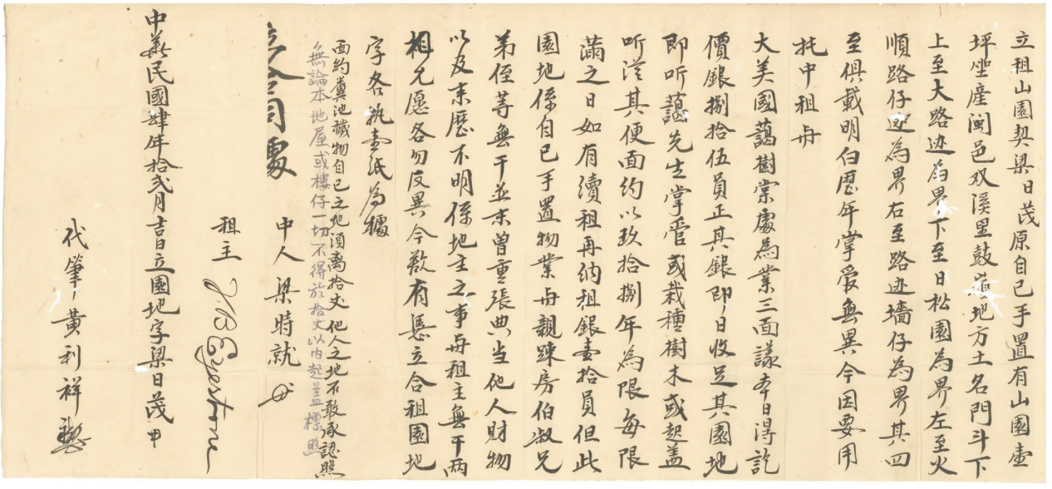 立租山園契梁日茂原自己手置有山園壹
坪坐產閩邑双溪里鼓嶺地方土名門斗下
上至大路迹為界下至日松園為界左至火
順路仔迹為界右至路迹墻仔為界其四
至俱載明白歷年掌爱無異今因要用
托中租與
大美國藹樹棠處為業三面議本日得訖
價銀捌拾伍員正其銀即日收足其園地
即听藹先生掌管或栽種樹木或起蓋
听従其便面約以玖拾捌年為限每限
滿之日如有續租再納租銀壹拾員但此
園地係自己手置物業與親踈房伯叔兄
弟侄等無干並未曽重張典当他人財物
以及来歷不明係地主之事與租主無干两
相允愿各勿反異今欲有憑立合租園地
字各执壹纸為據
面約糞池穢物自己之地須离拾丈他人之地不敢承認照
無論本地屋或樓仔一切不得於拾丈以内起盖標照
立合同處
中人 梁時就
租主 J.B. Eyestone
中華民國肆年拾弍月吉日立園地字梁日茂
代筆 黃利祥